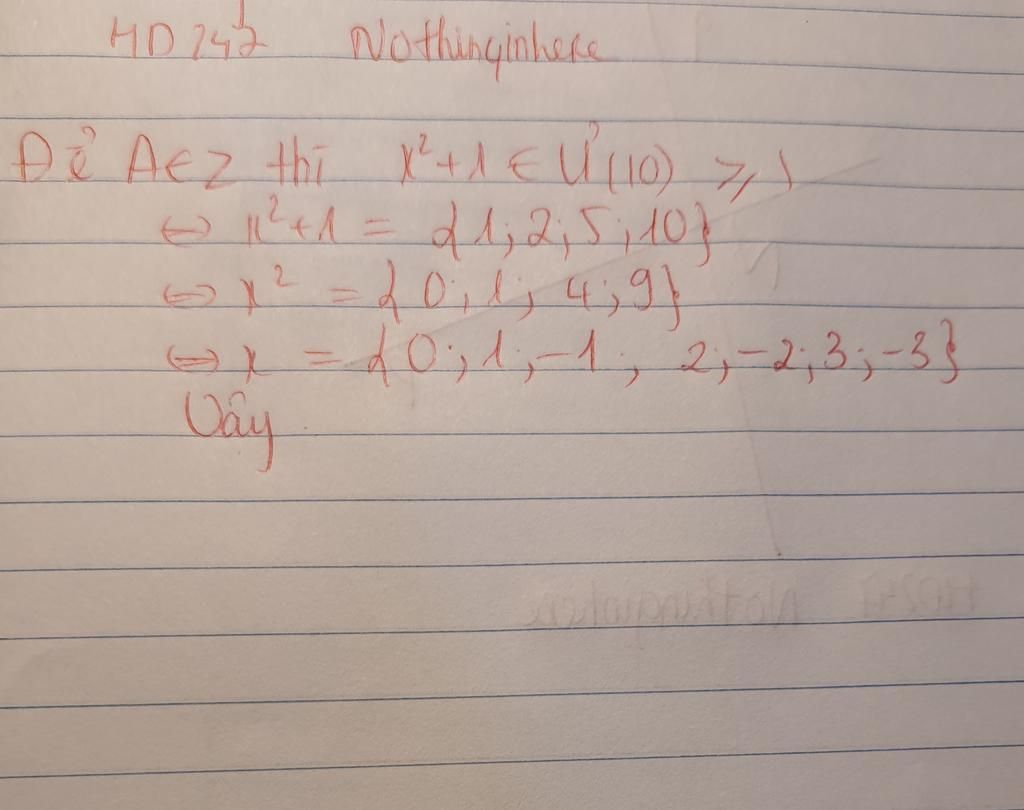 HD247 Nothinginhere
Để A∈Z thì x²+1 ∈ Ư(10) ≥ 1
⇔ x²+1 = {1; 2; 5; 10}
⇔ x² = {0; 1; 4; 9}
⇔ x = {0; 1; -1; 2; -2; 3; -3}
Vậy